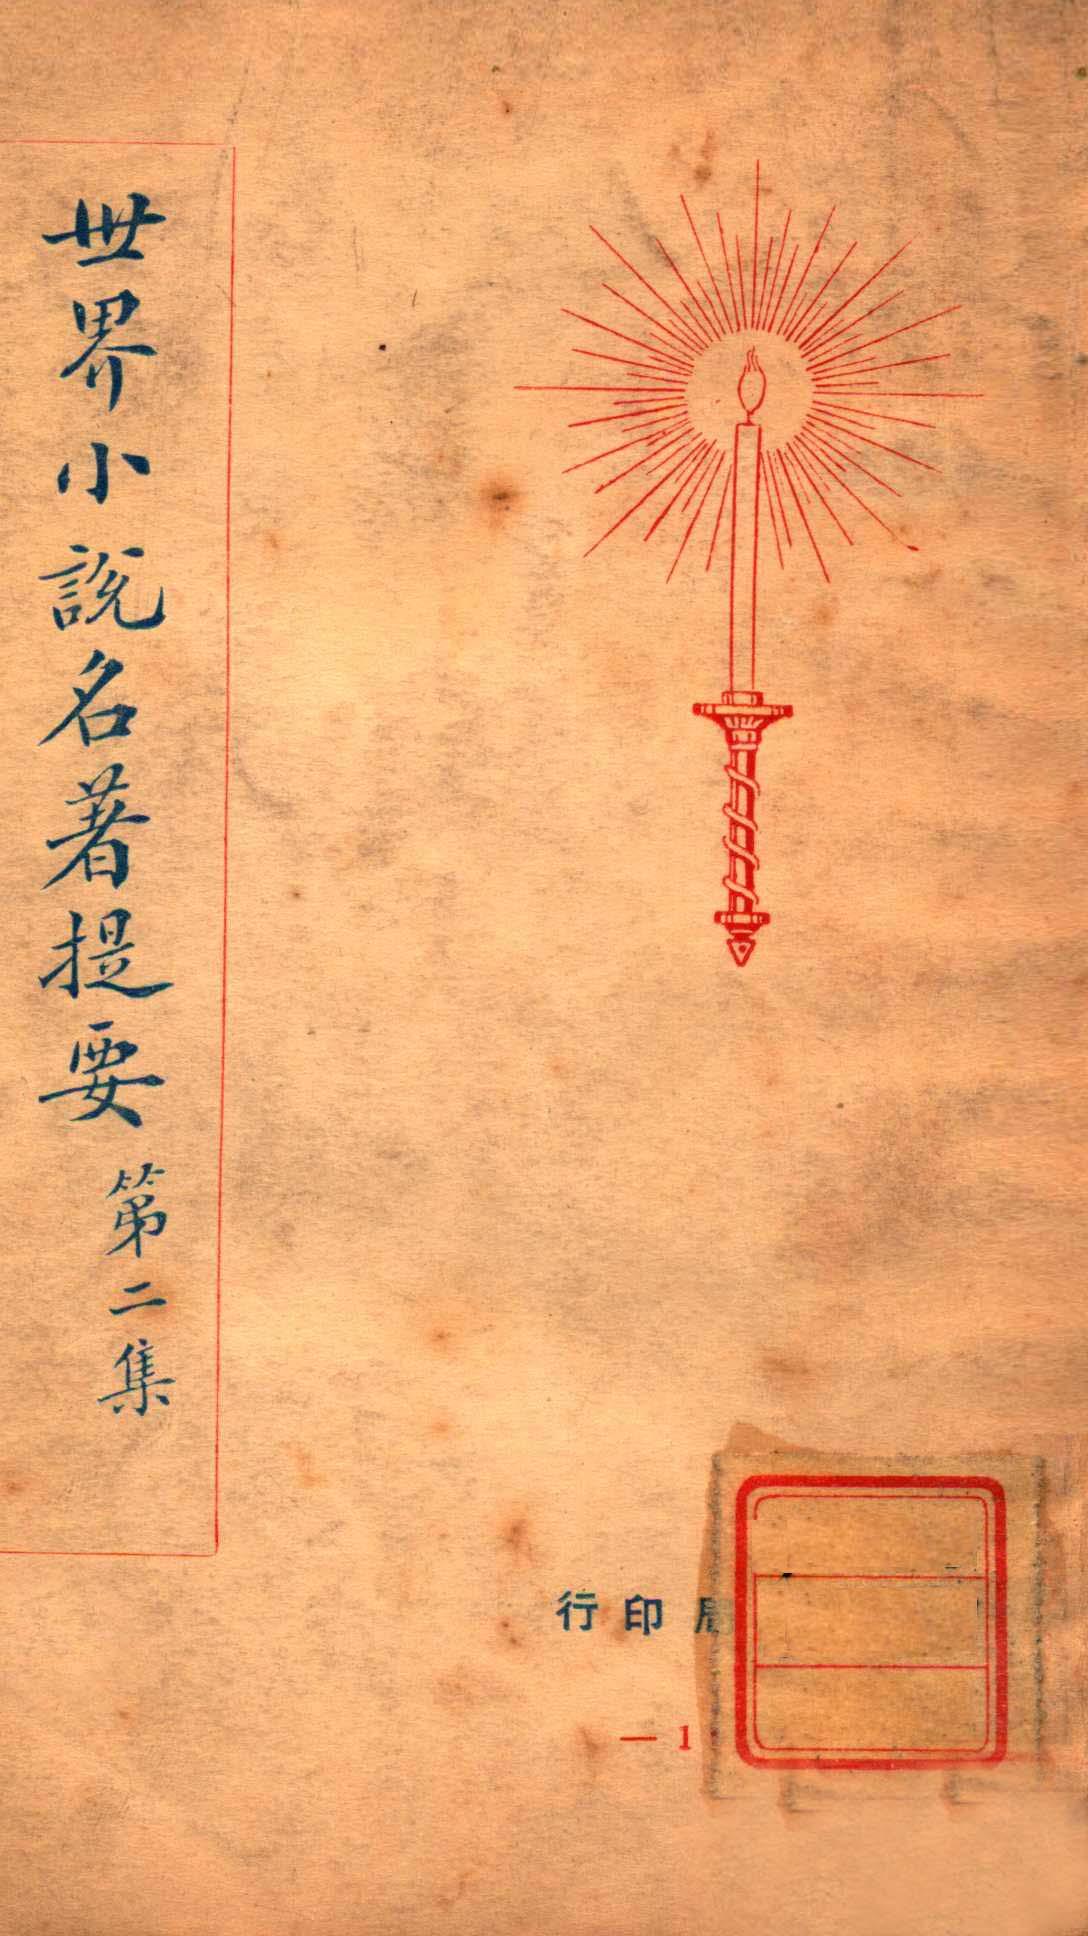 世界小說名著提要 第二集
行印局
— 1